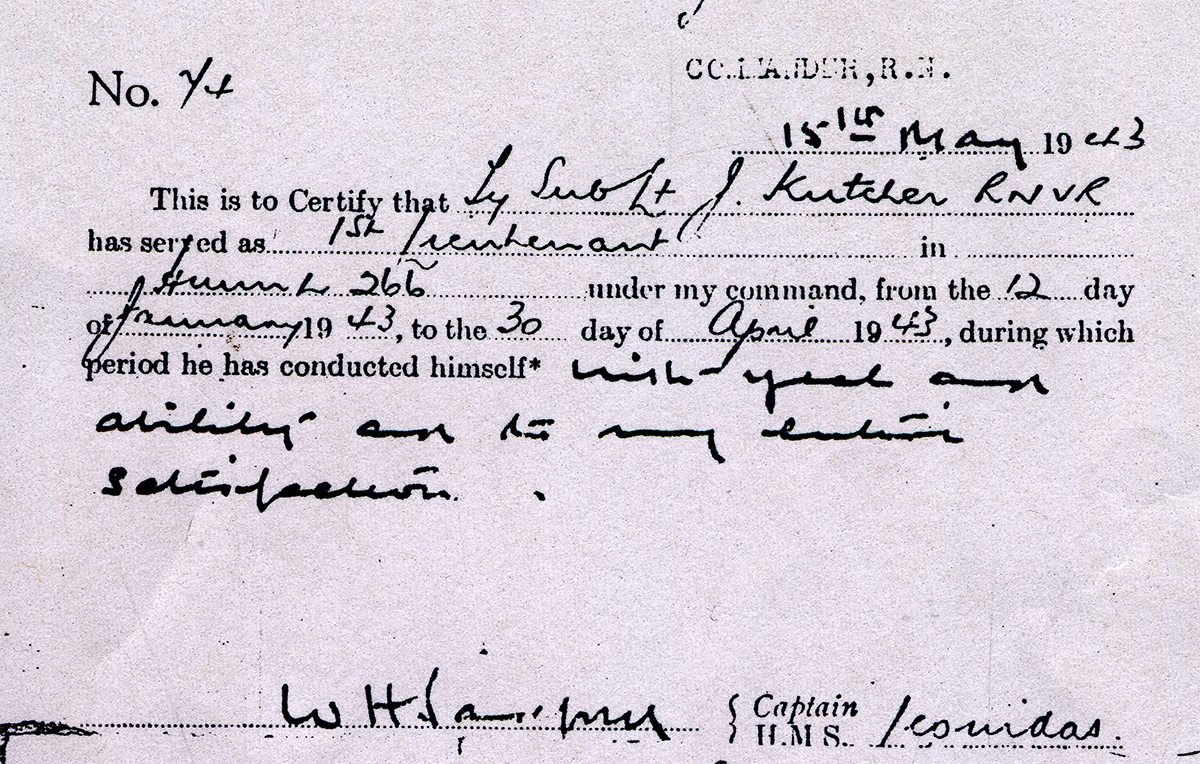 COMMANDER, R.N.
No. 74
15th May 1943
This is to Certify that Ty Sub Lt J. Kutcher RNVR
has served as 1st Lieutenant in
266 under my command, from the 12 day
of January 1943, to the 30 day of April 1943, during which
period he has conducted himself* with zeal and
ability and to my entire
satisfaction.
W H
{ Captain
H.M.S. Leonidas.